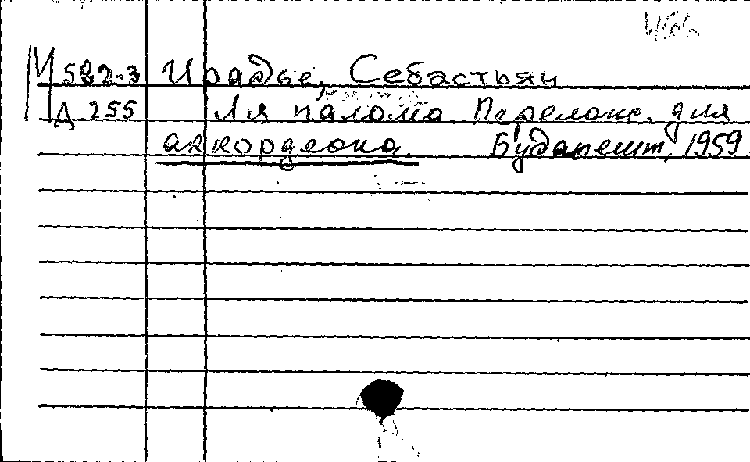 М 582-3 Ирадье, Себастьян
Д 255 Ля палома. Перелож. для
аккордеона Будапешт, 1959